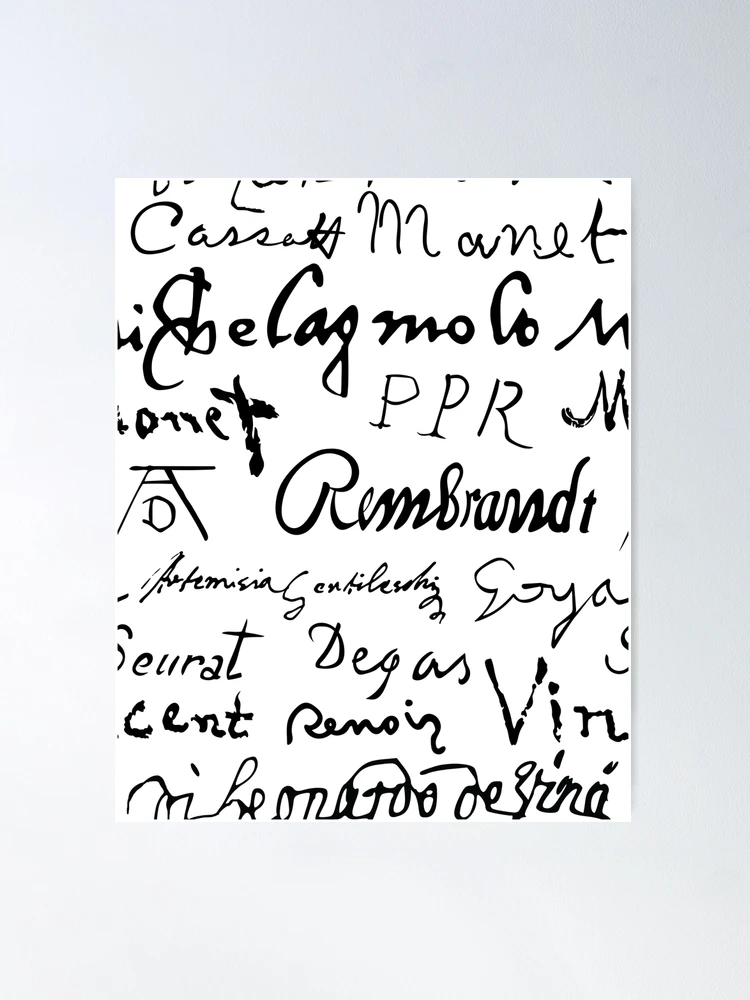 Cassatt Manet
ichelagmolo M
onet PPR M
AD Rembrandt
Artemisia Gentileschi Goya
Seurat Degas S
cent Renoir Vin
Leonardo de Vinci